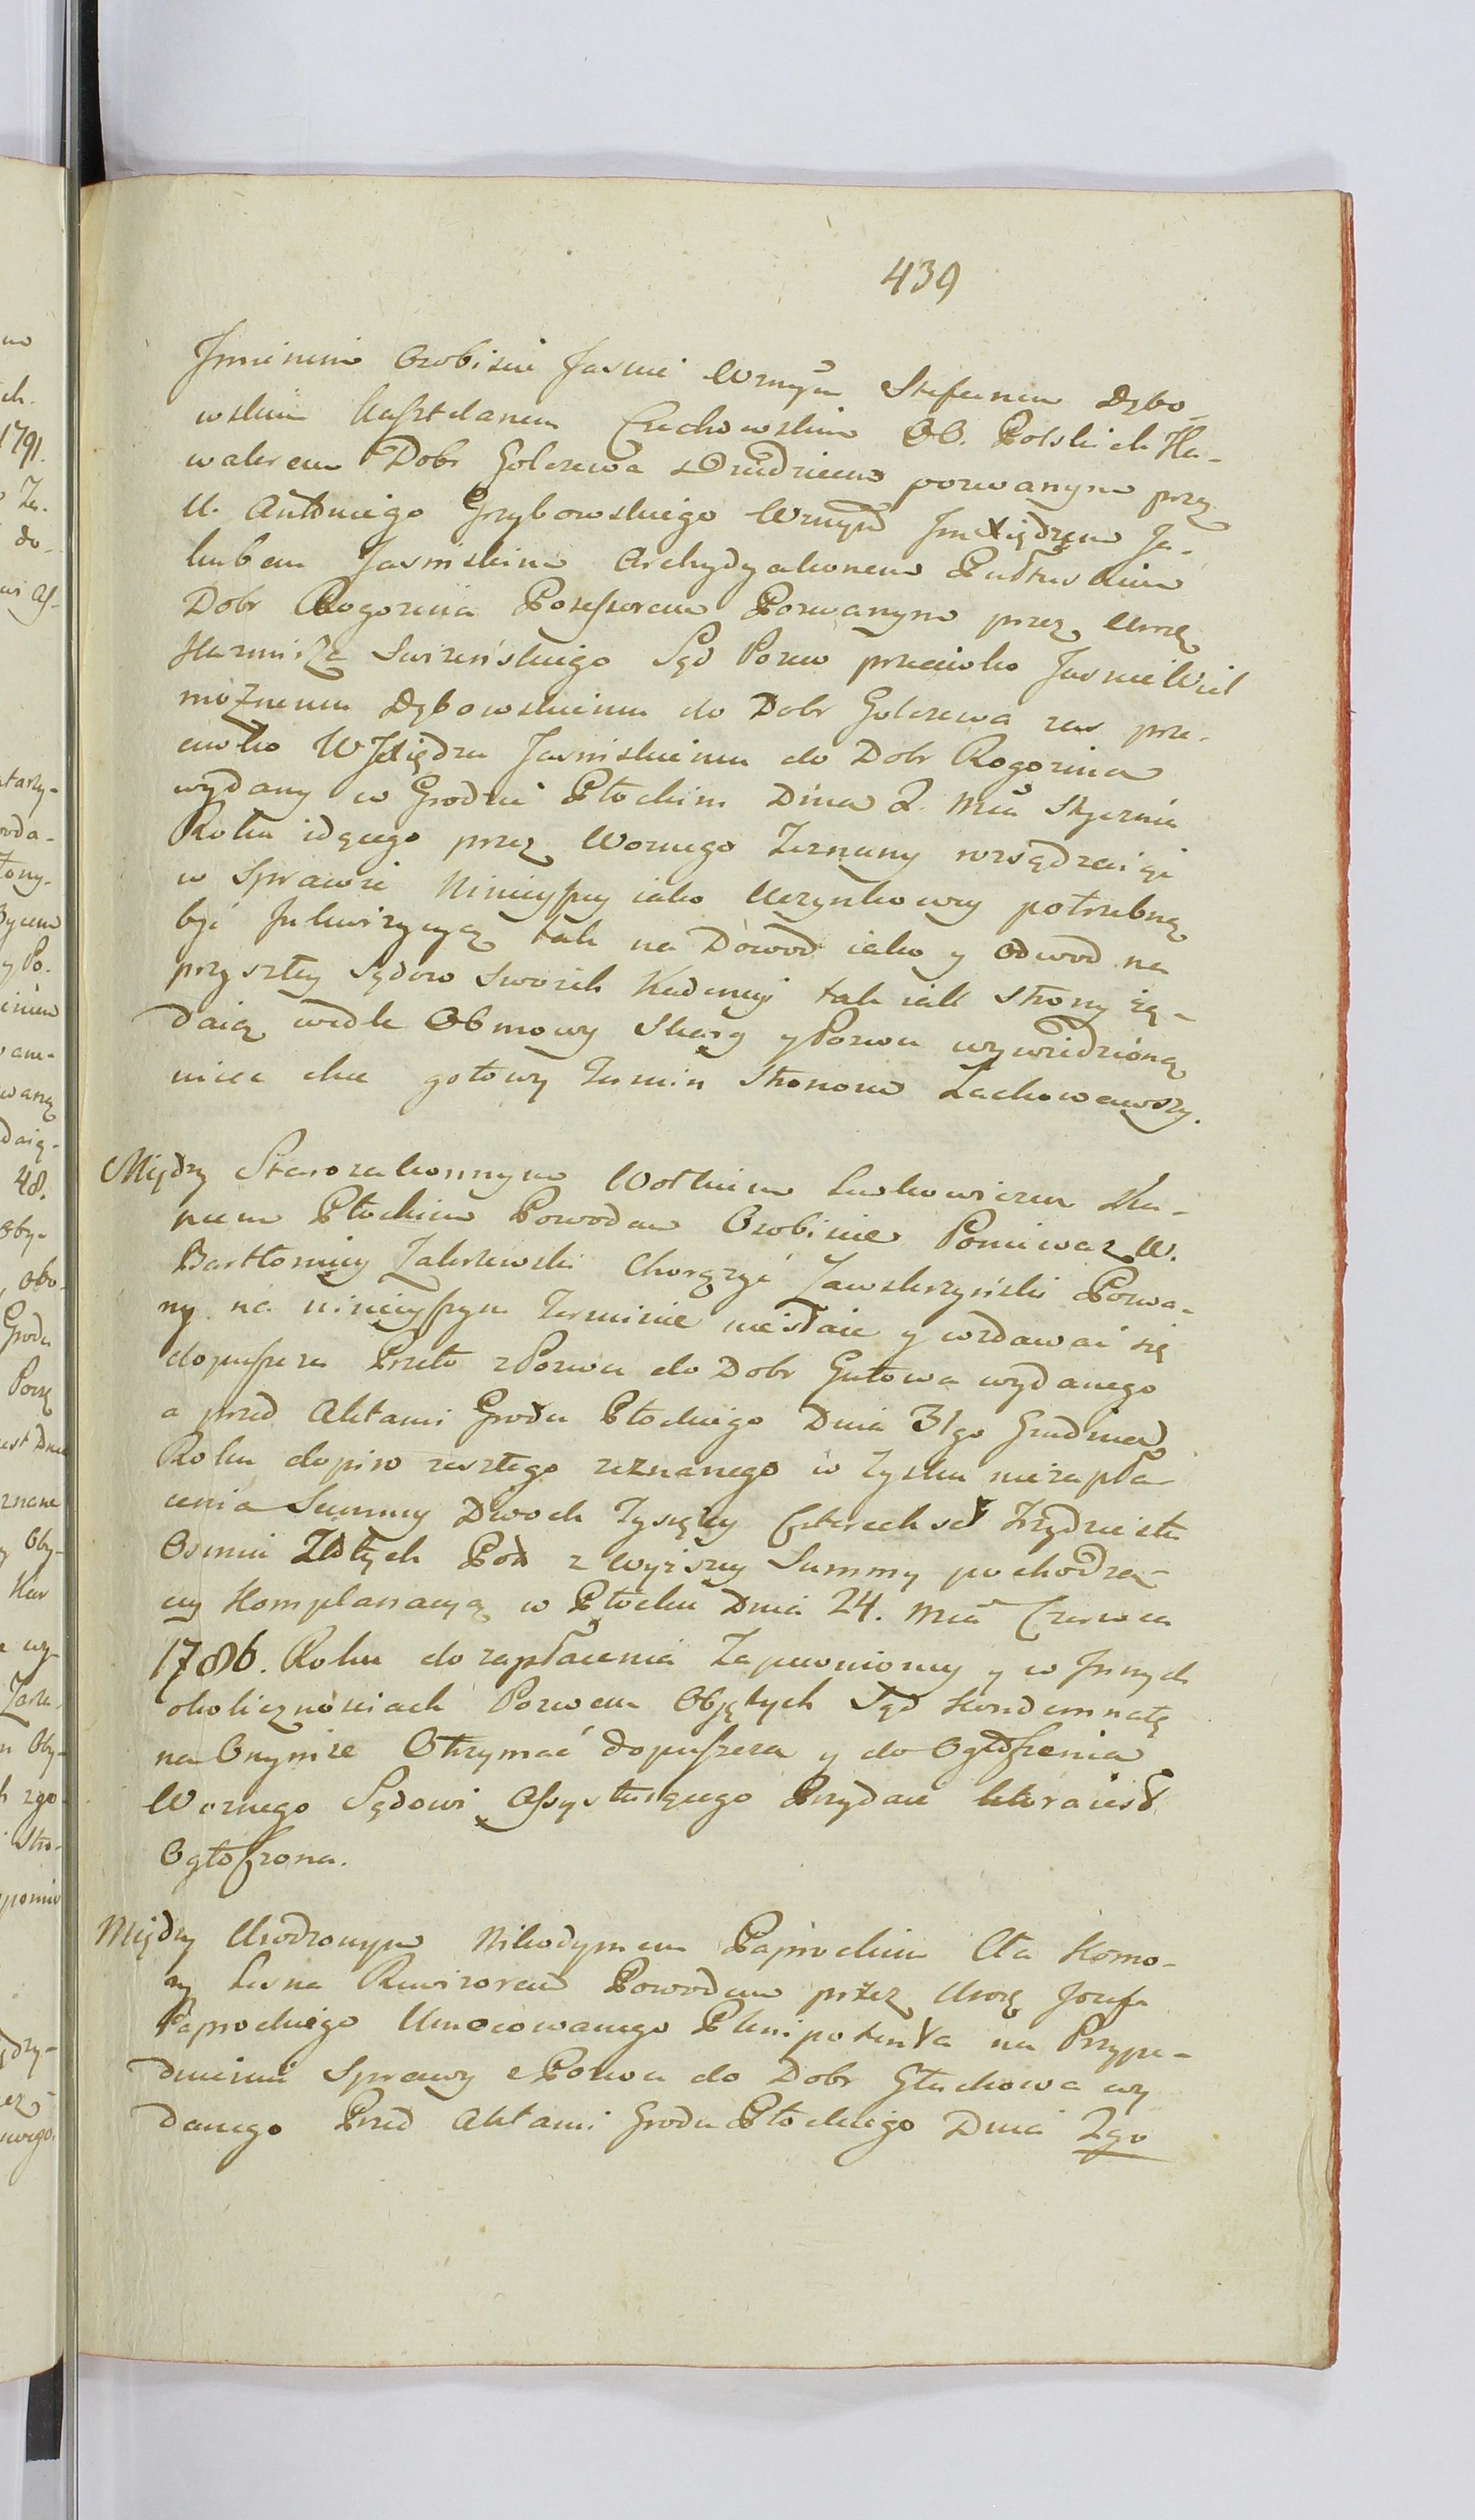 439
Jmieniu Osobiscie Jasnie Wmym Stefanem Dębo-
wskim Kasztelanem Ciechowskim OO. Polskich Ka-
walerem Dobr Golezewa Dziedzicem pozwanym przez
U. Antoniego Grzybowskiego Wmym Jmcxiędzem Ja-
kubem Jasinskim Archydyakonem Pułtuskim
Dobr Rogozina Possessorem Pozwanym przez Urzę
Kazmirza Swirenskiego Sąd Pozew przeciwko Jasnie Wiel
możnemu Dębowskiemu do Dobr Golezewa zas prze-
ciwko WJXiędzu Jasinskiemu do Dobr Rogozina
wydany w Grodzie Płockim Dnia 2. Mca Stycznia
Roku idącego przez Woznego Zeznany rozsądzaiąc
w Sprawie Ninieyszey iako Uczynkowey potrzebną
być Jnkwizycyą tak na Dowod iako y Odwod na
przyszłey Sądow Swoich Kadencyi tak iak Strony żą-
daią wedle Obmowy Skarg y Pozwu wywiedzioną
miec chce gotowy Termin Stronom Zachowawszy.
Między Starozakonnym Wolkiem Laskowiczem Ku-
pcem Płockim Powodem Osobiscie Poniewaz W.
Bartłomiey Zakrzewski Chorązyć Zawskrzyński Pozwa-
ny na ninieyszym Terminie niestaie y wzdawać się
dopuszcza Przeto z Pozwu do Dobr Gutowa wydanego
a przed Aktami Grodu Płockiego Dnia 31go Grudnia
Roku dopiro zeszłego zeznanego w Zysku niezapła-
cenia Summy Dwoch Tysięcy Czterech set Trzydziestu
Osmiu Złłtych Pols z wyższey Summy pochodzą-
cey Komplanacyą w Płocku Dnia 24. Mca Czerwca
1786. Roku do zapłacenia Zapewnioney y w Jnnych
okolicznosciach Pozwem Objętych Sąd Kondemnatę
na Onymże Otrzymać dopuszcza y do Ogłoszenia
Woznego Sądowi Assystuiącego Przydaie ktora iest
Ogłoszona.
Między Urodzonym Nikodymem Paprockim Cła Komo-
ry Lesna Rewizorem Powodem przez Urozę Jozefa
Paprockiego Umocowanego Plenipotenta na Przypa-
dnieniu Sprawy z Pozwu do Dobr Głuchowa wy
danego Przed Aktami Grodu Płockiego Dnia 2go